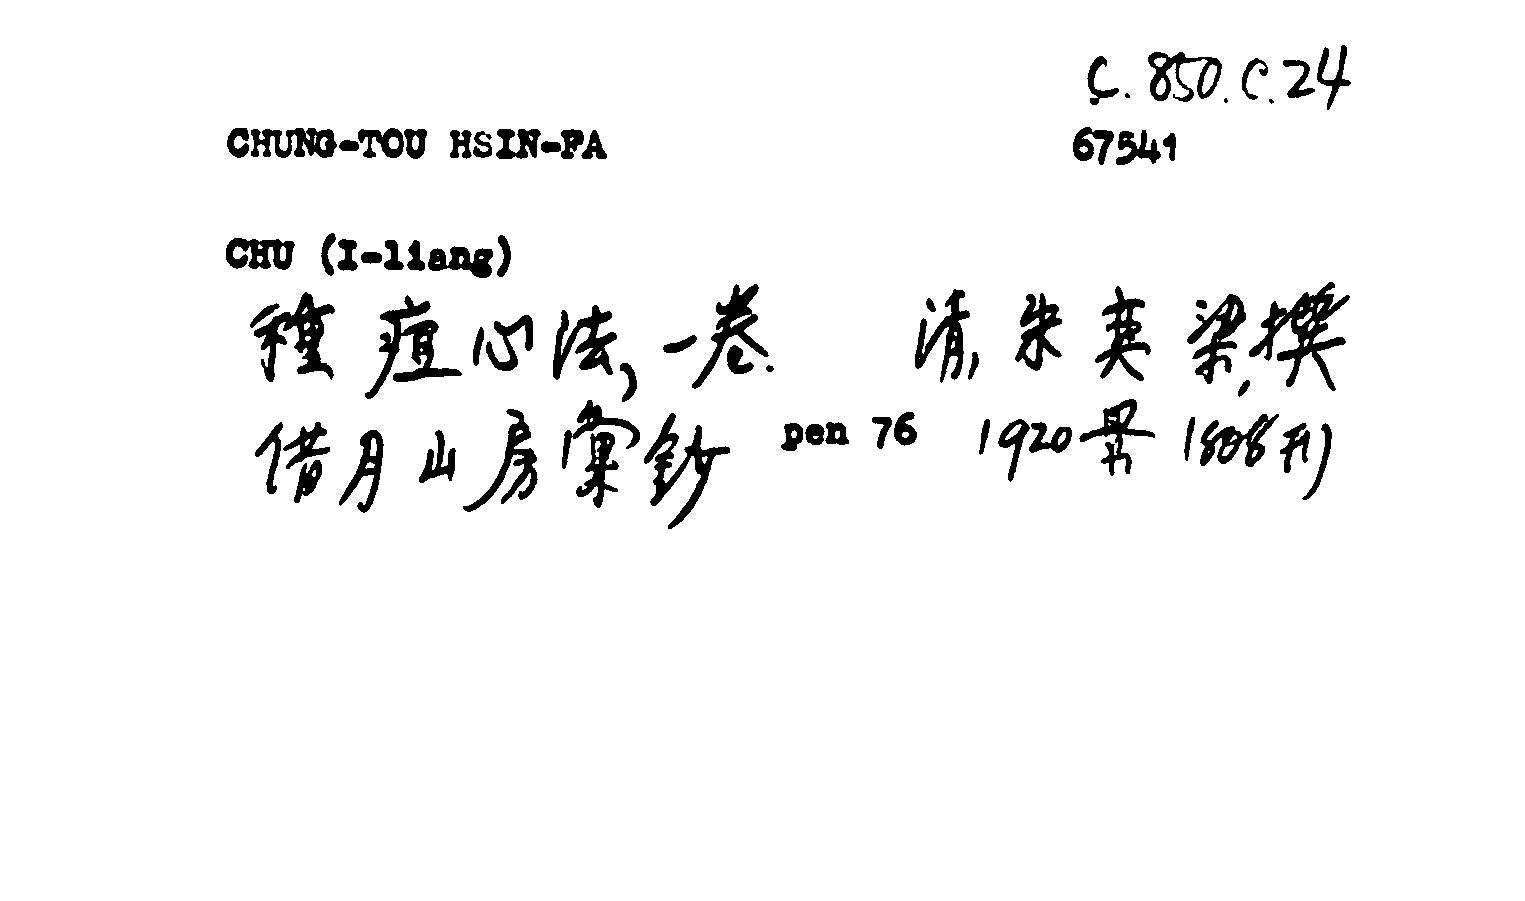 C. 850.c.24
CHUNG-TOU HSIN-FA 67541
CHU (I-liang)
種痘心法, 一卷. 清, 朱奕梁, 撰
借月山房彙鈔 pen 76 1920景 1808刊